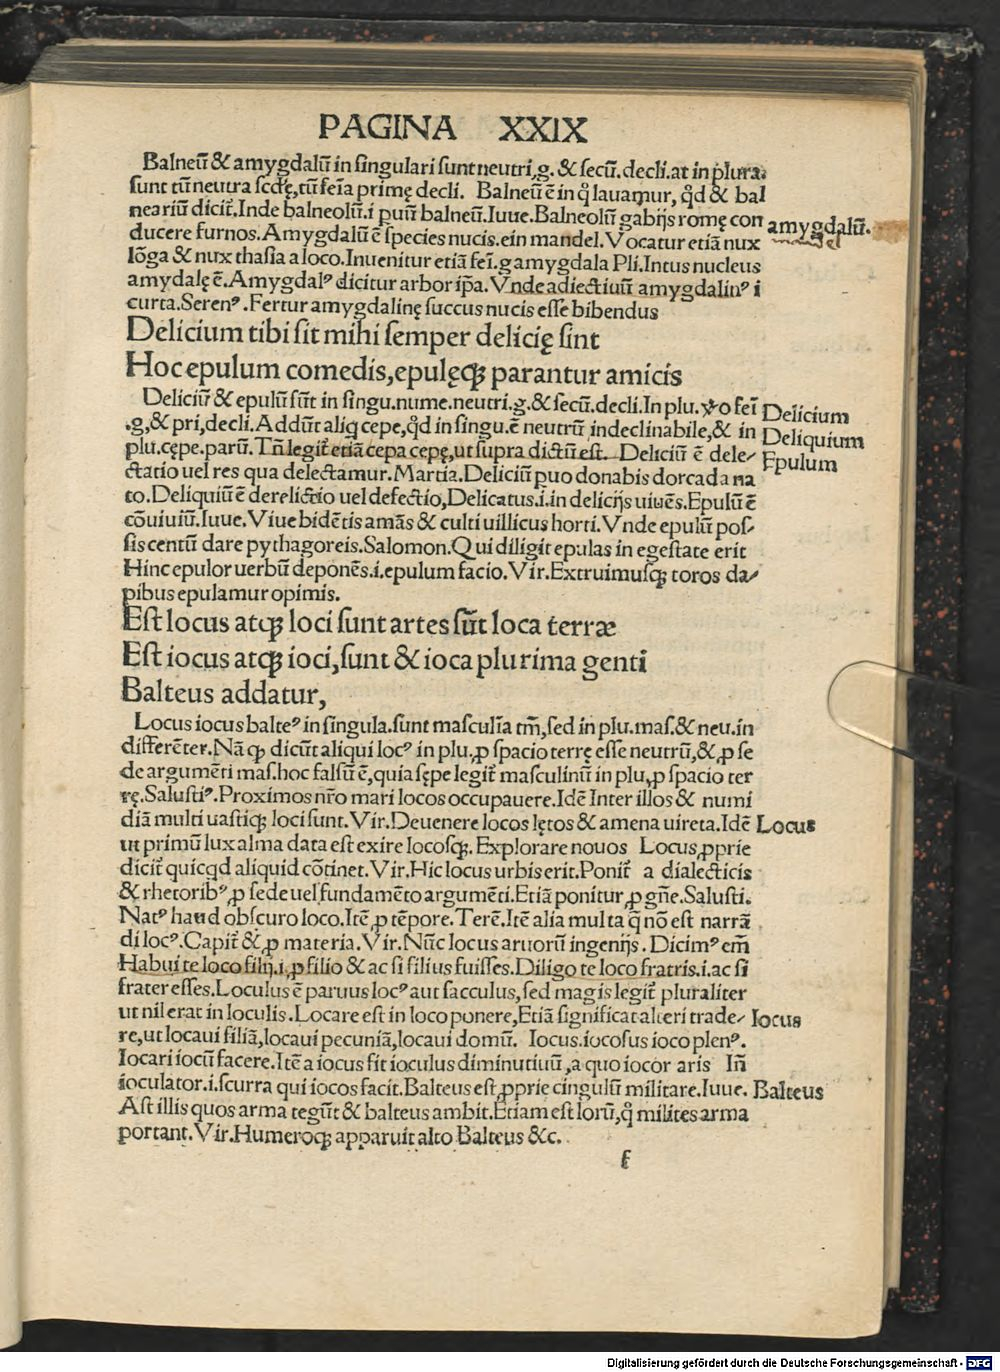 PAGINA XXIX
Balneū & amygdalū in singulari sunt neutri,g. & secū.decli.at in plura.
sunt tū neutra scdę,tū feīa primę decli. Balneū ē in q̊ lauamur, qd̓ & bal
neariū dicit̃.Inde balneolū.i puū balneū.Iuue.Balneolū gabijs romę con
amygdalū.
mandel
ducere furnos.Amygdalū ē species nucis.ein mandel.Vocatur etiā nux
lōga & nux thasia a loco.Inuenitur etiā feī.g amygdala Pli.Intus nucleus
amydalę ē.Amygdalꝰ dicitur arbor ip̄a.Vnde adiectiuū amygdalinꝰ i
curta.Serenꝰ.Fertur amygdalinę succus nucis esse bibendus
Delicium tibi sit mihi semper delicię sint
Hoc epulum comedis,epulęqꝫ parantur amicis
Deliciū & epulū sūt in singu.nume.neutri.g.& secū.decli.In plu.v̊o feī
Delicium
.g,& pri,decli.Addūt aliq̄ cepe,qd̓ in singu.ē neutrū indeclinabile,& in
Deliquium
plu.cępe.parū.Tn̄ legit̃ etiā cepa cepę,ut supra dictū est. Deliciū ē dele-
Epulum
ctatio uel res qua delectamur.Martia.Deliciū puo donabis dorcada na
to.Deliquiū ē derelictio uel defectio,Delicatus.i.in delicijs uiuēs.Epulū ē
cōuiuiū.Iuue.Viue bidētis amās & culti uillicus horti.Vnde epulū pos-
sis centū dare pythagoreis.Salomon.Qui diligit epulas in egestate erit
Hinc epulor uerbū deponēs.i.epulum facio.Vir.Extruimusqꝫ toros da-
pibus epulamur opimis.
Est locus atqꝫ loci sunt artes sūt loca terræ
Est iocus atqꝫ ioci,sunt & ioca plurima genti
Balteus addatur,
Locus iocus balteꝰ in singula.sunt masculīa tm̄,sed in plu.mas.& neu.in
differēter.Nā qꝫ dicūt aliqui locꝰ in plu,ꝓ spacio terrę esse neutrū,&,ꝓ se
de argumēti mas.hoc falsū ē,quia sępe legit̃ masculinū in plu,ꝓ spacio ter
rę.Salustiꝰ.Proximos nr̄o mari locos occupauere.Idē Inter illos & numi
diā multi uastiqꝫ loci sunt.Vir.Deuenere locos lętos & amena uireta.Idē
Locus
ut primū lux alma data est exire locosqꝫ.Explorare nouos Locus,ꝓprie
dicit̃ quicqd̓ aliquid cōtinet.Vir.Hic locus urbis erit.Ponit̃ a dialecticis
& rhetoribꝰ,ꝓ sede uel fundamēto argumēti.Etiā ponitur,ꝓ gn̄e.Salusti.
Natꝰ haud obscuro loco.Itē,ꝓ tēpore.Terē.Itē alia multa q̄ nō est narrā
di locꝰ.Capit̃ &,ꝓ materia.Vir.Nūc locus aruorū ingenijs.Dicimꝰ em̄
Habui te loco filij.i,ꝓ filio & ac si filius fuisses.Diligo te loco fratris.i.ac si
frater esses.Loculus ē paruus locꝰ aut sacculus,sed magis legit̃ pluraliter
ut nil erat in loculis.Locare est in loco ponere,Etiā significat alteri trade-
Iocus
re,ut locaui filiā,locaui pecuniā,locaui domū. Iocus.iocosus ioco plenꝰ.
Iocari iocū facere.Itē a iocus fit ioculus diminutiuū,a quo iocor aris In̄
ioculator.i.scurra qui iocos facit.Balteus est,ꝓprie cingulū militare.Iuue.
Balteus
Ast illis quos arma tegūt & balteus ambit.Etiam est lorū,q̊ milites arma
portant.Vir.Humeroqꝫ apparuit alto Balteus &c.
f
Digitalisierung gefördert durch die Deutsche Forschungsgemeinschaft - DFG